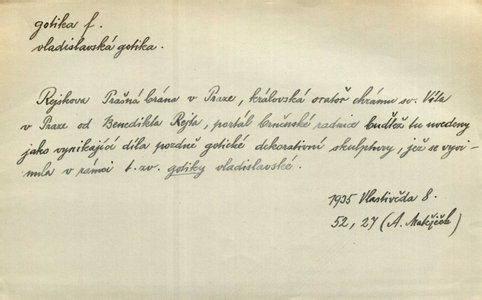 gotika f.
vladislavská gotika.
Rejskova Prašná brána v Praze, královská oratoř chrámu sv. Víta
v Praze od Benedikta Rejta, portál brněnské radnice buďtež tu uvedeny
jako vynikající díla pozdně gotické dekorativní skulptury, jež se vyvi-
nula v rámci t. zv. gotiky vladislavské.
1935 Vlastivěda 8.
52, 27 (A. Matějček)